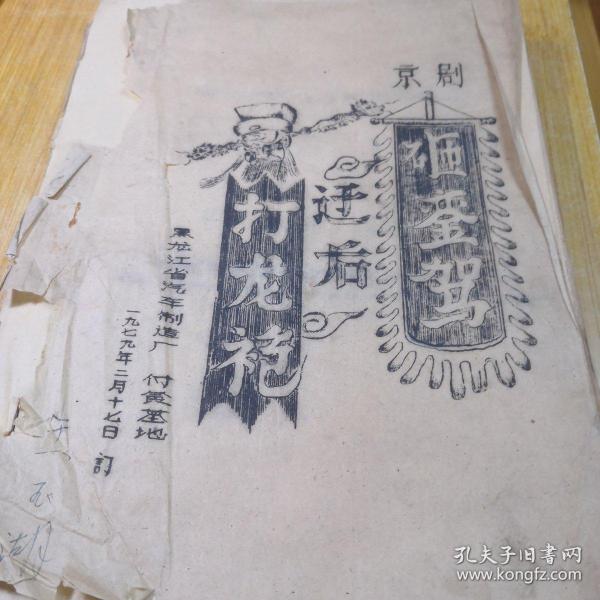 京剧
砸銮驾
迓后
打龙袍
黑龙江省汽车制造厂 付食基地
一九七九年二月十七日 订
孔夫子旧书网
www.kongfz.com